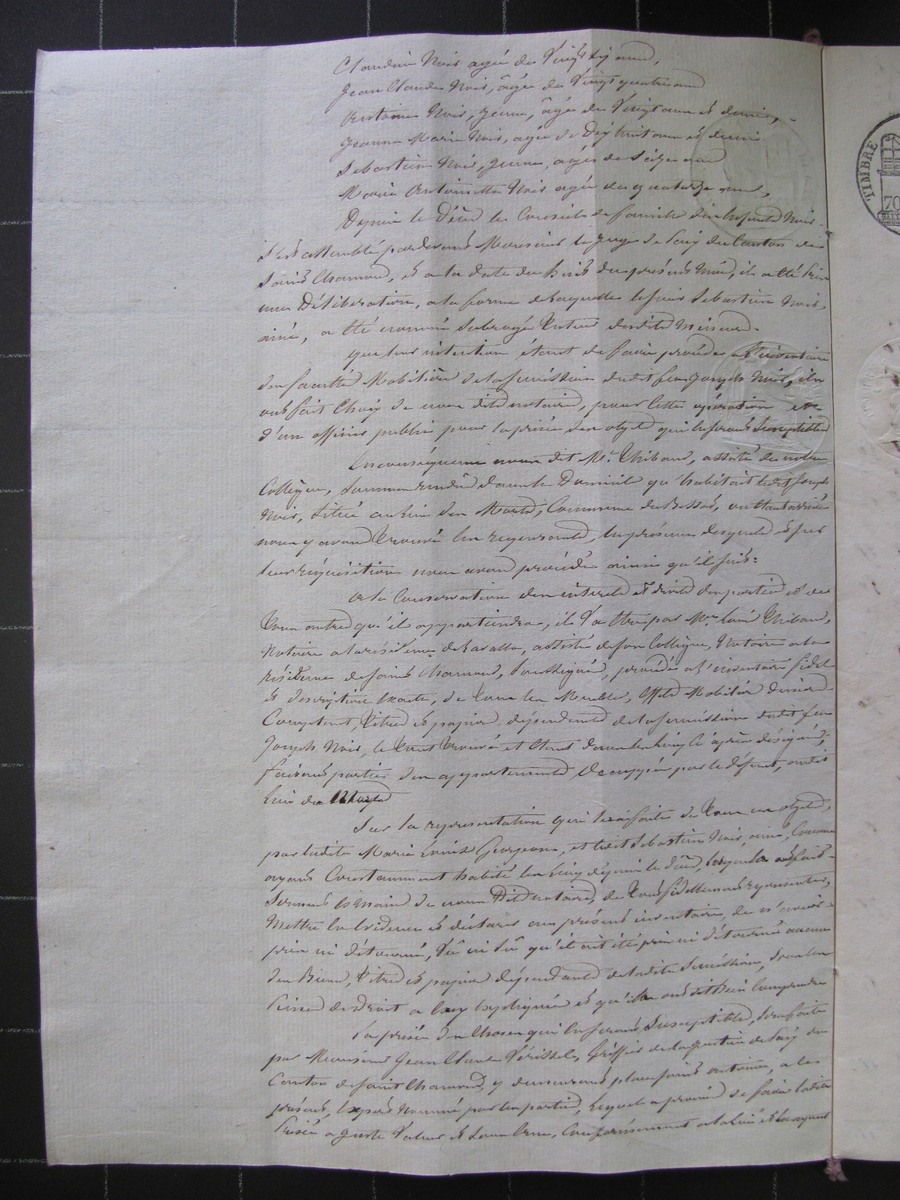 Claudine Noir agée de Vingt six ans,
Jean Claude Noir, âgé de Vingt quatre ans
Antoine Noir, jeune, âgé de Vingt ans et demi,
Jeanne Marie Noir, agée de Dix huit ans et demi
Sebastien Noir, jeune, agé de seize ans
Marie Antoinette Noir agée de quatorze ans,
Depuis le décès le Conseil de famille des enfants Noir
s'est assemblé pardevant Monsieur le juge de Paix du Canton de
Saint Chamond, et a la date du huit du présent mois, il a été pris
une Délibération, a la forme de laquelle le sieur Sebastien Noir,
ainé, a été nommé subrogé tuteur desdits mineurs.
Que leur intention étant de faire procéder a l'inventaire
des facultés Mobilières de la succession dudit feu Joseph Noir, ils
ont fait Choix de nous dits notaires, pour cette opération et
d'un officier public pour la prisée des objets qui en seront susceptibles
En conséquence nous dit Me Thibaud, assisté de notre
Collègue, sommes rendus dans le Domicile qu'habitait ledit Joseph
Noir, situé au lieu de la Martel, Commune de
nous y avons trouvé les requérants, en présence desquels et sur
leur réquisition nous avons procédé ainsi qu'il suit:
A la Conservation des interets et droits des parties et de
tous autres qu'il appartiendra, il va être par Me Louis Thibaud,
Notaire a la residence de Lavalla, assisté de son Collègue, Notaire a la
résidence de Saint Chamond, soussignés, procédé a l'inventaire fidel
et description Exacte, de tous les Meubles, Effets Mobiliers deniers
Comptant, titres et papiers, dépendants de la succession dudit feu
Joseph Noir, le tout trouvé et étant dans les lieux ci après désignés,
faisant parties des appartements Occuppés par le défunt, audit
lieu de
Sur la représentation qui sera faite de tous ces objets,
par ladite Marie Louise Georjeon, et ledit Sebastien Noir, ainé, Comme
ayant Constamment habité les lieux depuis le décès, lesquels ont fait
Serment ès mains de nous Dits notaires, de tout fidellement représenter,
Mettre en Evidence et déclarer au présent inventaire, de n'avoir
pris ni détourné, Vu ni Su qu'il ait été pris ni détourné aucuns
des Biens, titres et papiers dépendants de ladite succession, sous les
peines de droit a eux Expliquées et qu'ils ont dit bien Comprendre
La prisée des Choses qui en seront Susceptibles, sera faite
par Monsieur Jean Claude Greffier de la justice de Paix du
Canton de Saint Chamond, y demeurant place Saint a ce
présent, Expert Nommé par les parties, lequel a promis de faire ladite
Prisée a juste Valeur et sans Crue, Conformément a la loi et
TIMBRE
70